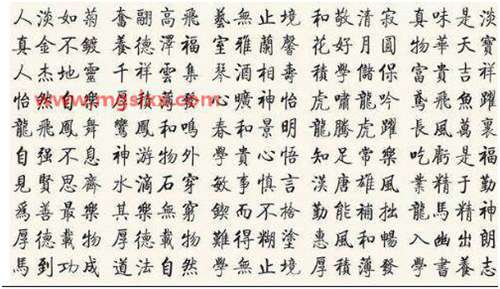 人淡如菊 奮翮高飛 藝無止境 和敬清寂 真味是淡
真金不鍍 養德澤福 室雅蘭馨 花好月圓 物華天寶
人杰地靈 千祥雲集 琴酒相壽 積學儲保 富貴吉祥
怡然自樂 心曠神怡 虎嘯龍吟 鳶飛魚躍
龍飛鳳舞 鸞鳳和鳴 春和景明 龍騰虎躍 長風萬裏
自强不息 神游物外 學貴心悟 知足常樂 吃虧是福
見賢思齊 水滴石穿 敏事慎言 漢唐雄風 業精于勤
爲善最樂 其樂無窮 鍥而不捨 勤能補拙 龍馬精神
厚德載物 厚德載物 難得糊塗 惠風和暢 入幽出朗
馬到功成 道法自然 學無止境 厚積薄發 學書養志